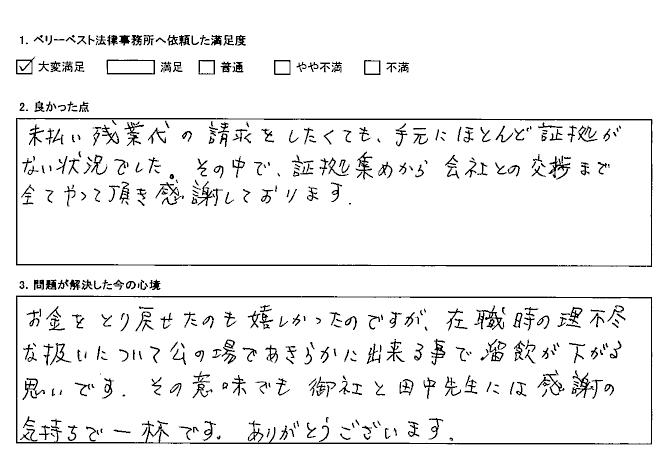 1. ベリーベスト法律事務所へ依頼した満足度
大変満足 満足 普通 やや不満 不満
2. 良かった点
未払い残業代の請求をしたくても、手元にほとんど証拠が
ない状況でした。その中で、証拠集めから会社との交捗まで
全てやって頂き感謝しております.
3. 問題が解決した今の心境
お金をとり戻せたのも嬉しかったのですが、在職時の理不尽
な扱いについて公の場であきらかに出来る事で溜飲が下がる
思いです. その意味でも御社と田中先生には感謝の
気持ちで一杯です。ありがとうございます.